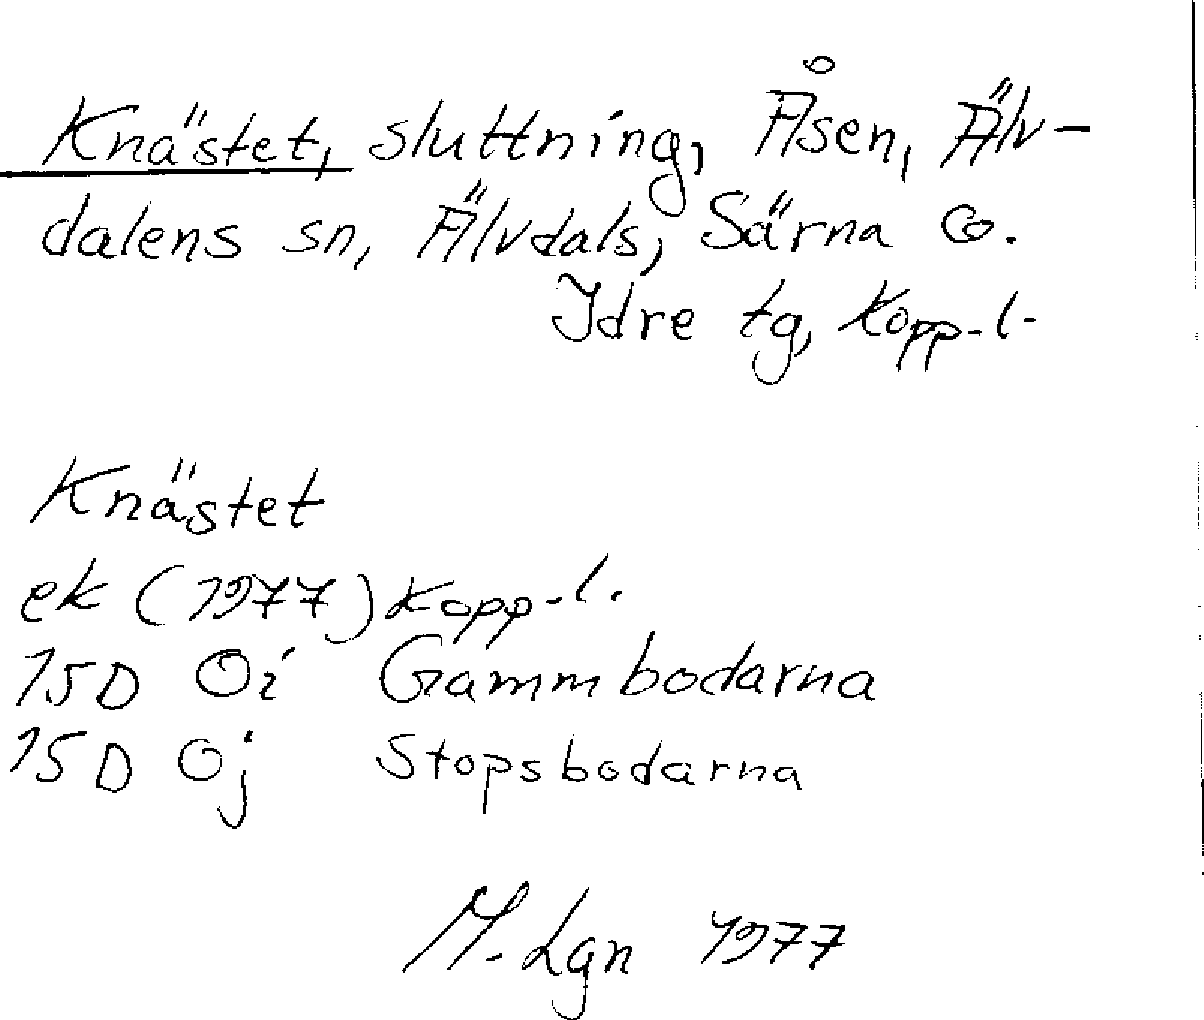 Knästet, sluttning, Åsen, Älv-
dalens sn, Älvdals, Särna o.
Idre tg, Kopp-l.
Knästet
ek (1977) Kopp-l.
15D 0i Gammbodarna
15D 0j Stopsbodarna
M. Lgn 1977